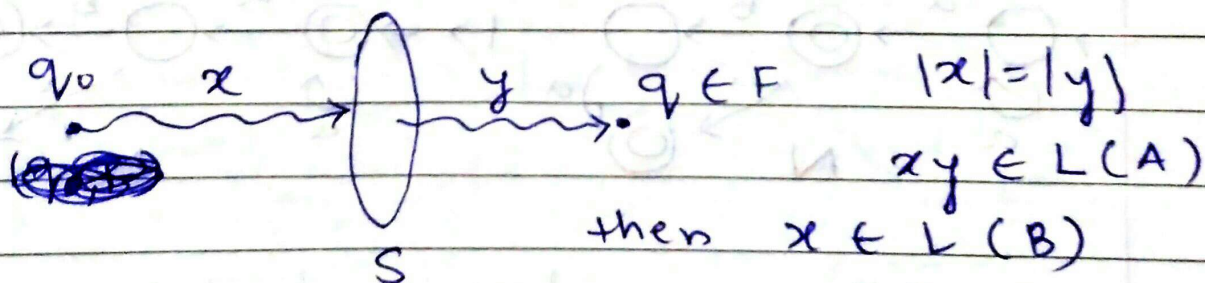 q₀ x y q ∈ F |x| = |y|
xy ∈ L(A)
then x ∈ L(B)
S